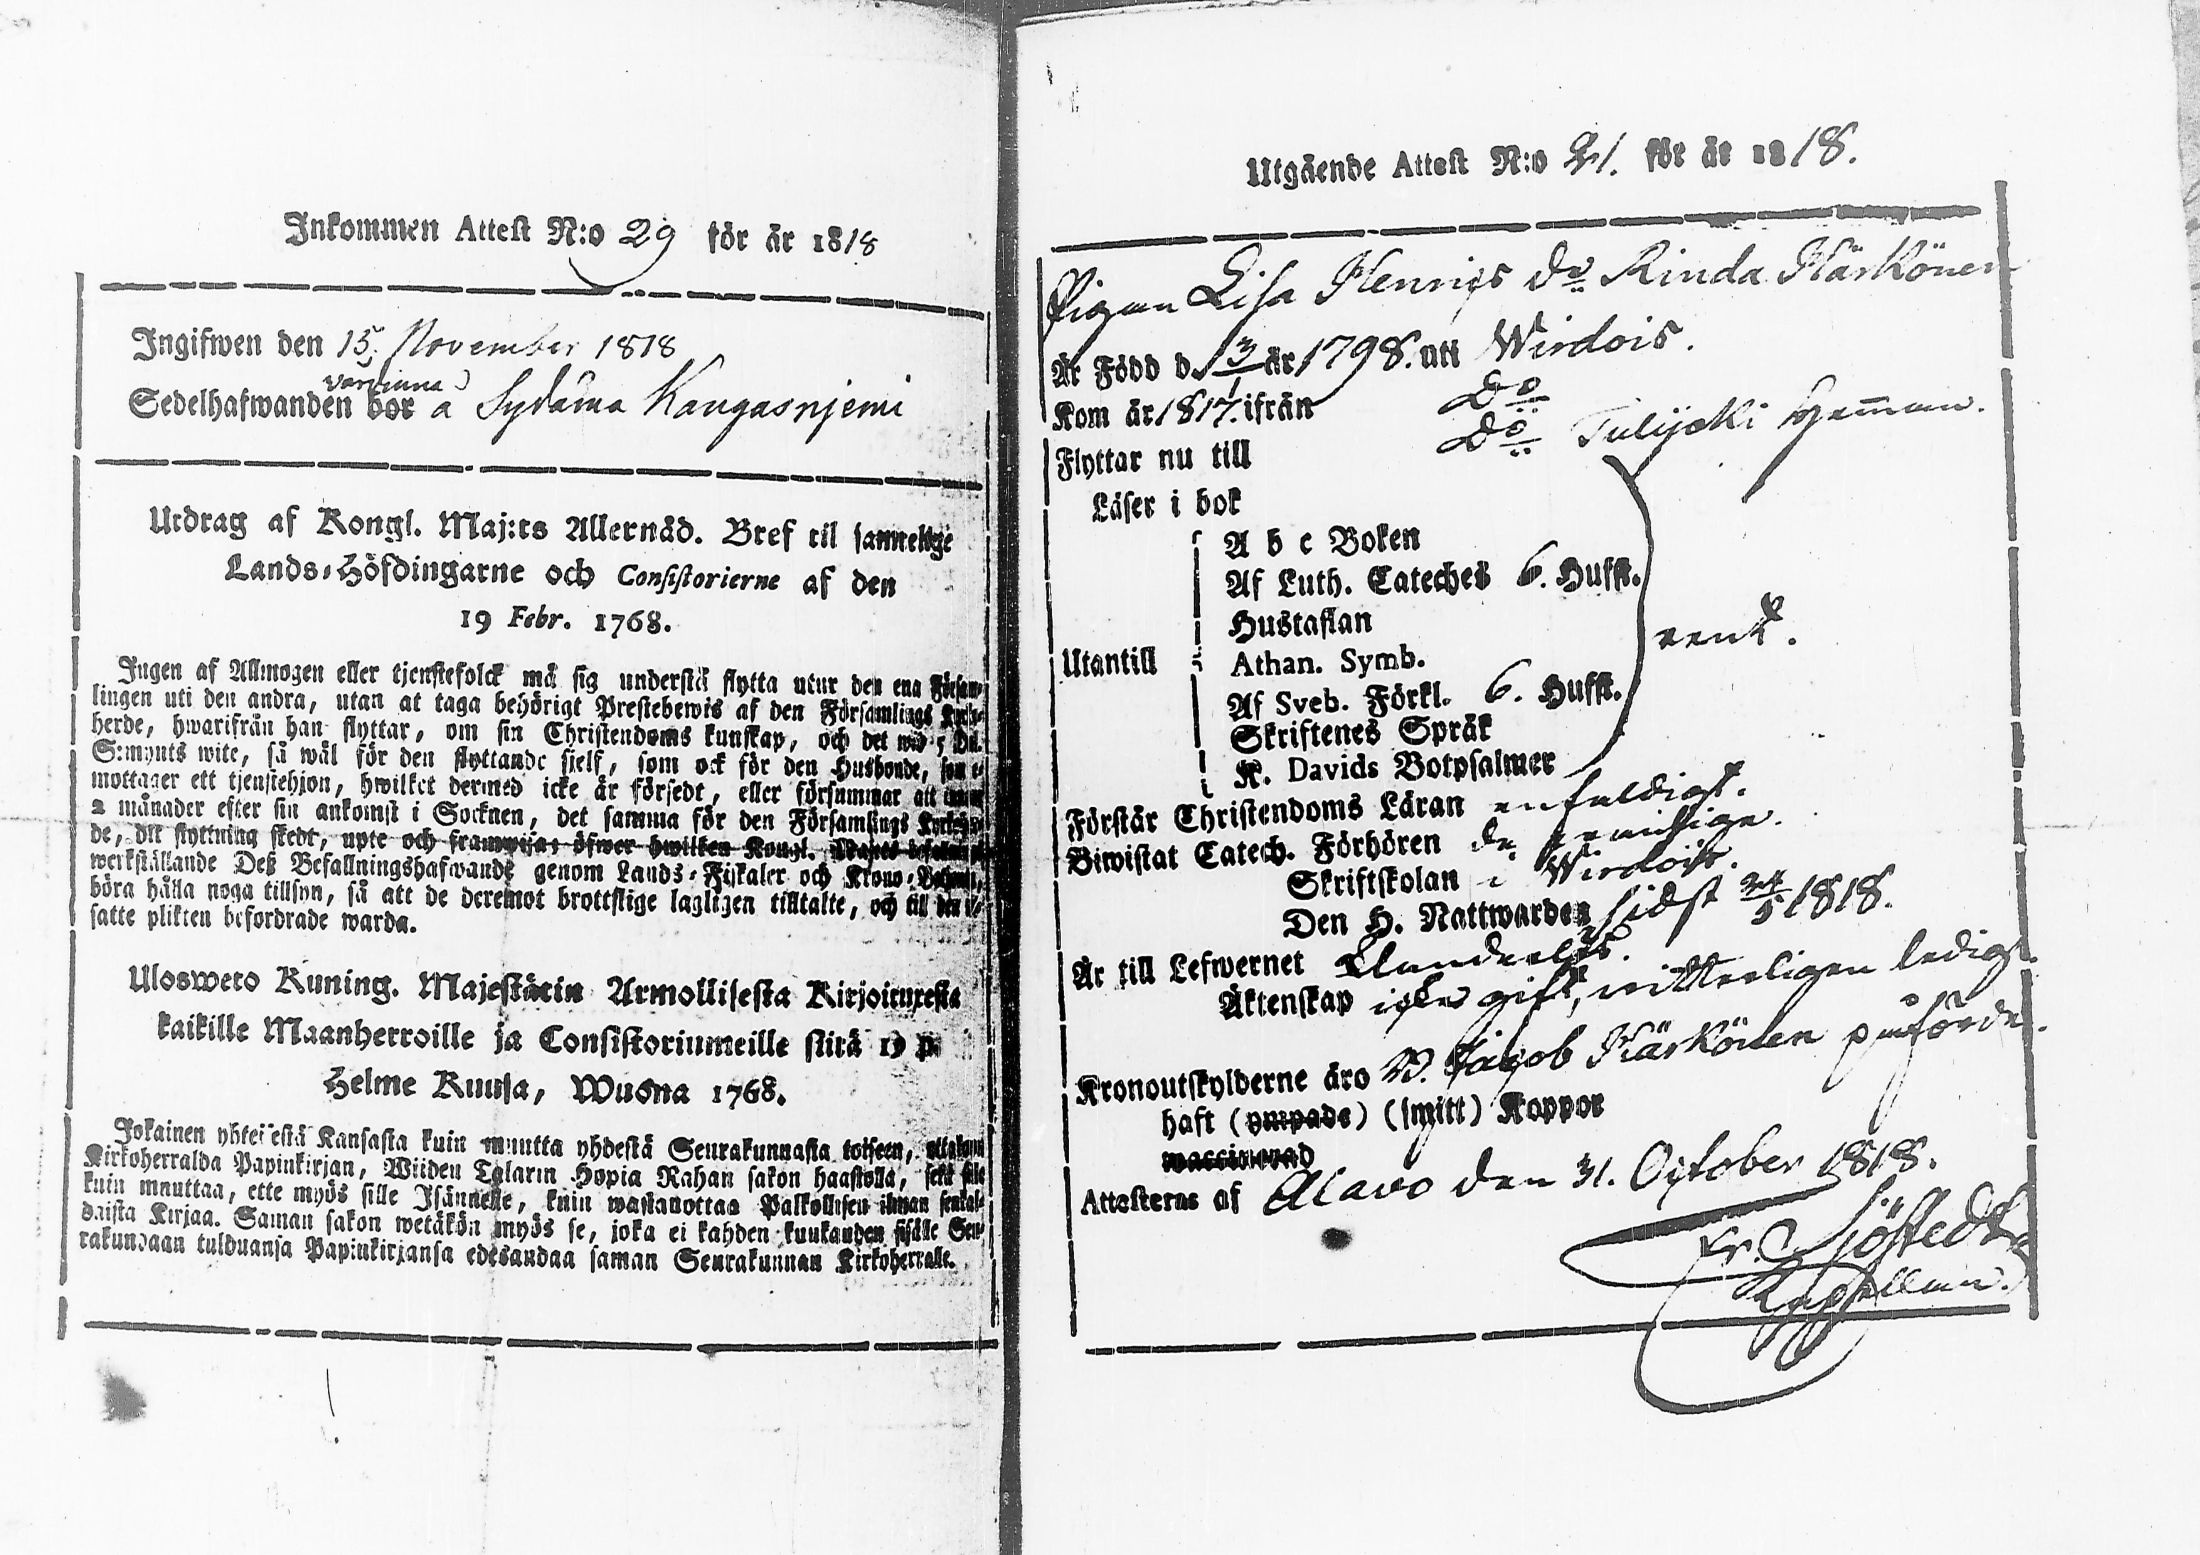 Inkommen Attest N:o 29 för år 1818
Ingifwen den 15 November 1818
värdinna
Sedelhafwanden bor å Sydäma Kangasnjemi
Utdrag af Kongl. Maj:ts Allernåd. Bref til samtelige
Lands-Höfdingarne och Consistorierne af den
19 Febr. 1768.
Ingen af Allmogen eller tjenstefolck må sig understå flytta utur den ena Försam-
lingen uti den andra, utan at taga behörigt Prestebewis af den Församlings Kyrko-
herde, hwarifrån han flyttar, om sin Christendoms kunskap, och det wid 5 Dal.
S:mynts wite, så wäl för den flyttande sjelf, som ock för den Husbonde, som e-
mottager ett tjenstehjon, hwilket dermed icke är försedt, eller försummar att innom
2 månader efter sin ankomst i Socknen, det samma för den Församlings Kyrkoher-
de, dit flyttning skedt, upte och framwisa; öfwer hwilken Kongl. Majets befallning
werkställande Deß Befallningshafwande genom Lands-Fiskaler och Krono-Betjente,
böra hålla noga tillsyn, så att de deremot brottslige lagligen tilltalte, och till den i-
satte plikten befordrade warda.
Ulosweto Kuning. Majestätin Armollisesta Kirjoituxesta
kaikille Maanherroille ja Consistoriumeille siitä 19 p.
Helme Kuusa, Wuona 1768.
Jokainen yhteisestä Kansasta kuin muutta yhdestä Seurakunnasta toiseen, ottakoon
Kirkoherralda Papinkirjan, Wiiden Talarin Hopia Rahan sakon haastolla, sekä sille
kuin muuttaa, ette myös sille Isännelle, kuin wastanottaa Palkollisen ilman senkal-
daista Kirjaa. Saman sakon wetäkön myös se, joka ei kahden kuukauden sisälle Seu-
rakundaan tulduansa Papinkirjansa edesandaa saman Seurakunnan Kirkoherralle.
Utgående Attest N:o 21. för år 1818.
Pigan Lisa Henrics dr Rinda Härkönen
Är Född d. 13/1 år 1798. uti Wirdois.
Kom år 1817. ifrån Do
Flyttar nu till Do Tulijoki hemman.
Läser i bok
A b c Boken
Af Luth. Cateches 6. Hufst.
Hustaflan
Utantill Athan. Symb. rent.
Af Sveb. Förkl. 6. Hufst.
Skriftenes Språk
K. Davids Botpsalmer
Förstår Christendoms Läran enfaldigt.
Biwistat Catech. Förhören de
Skriftskolan i Wirdois.
Den H. Nattwarden sidst 24/5 1818.
Är till Lefwernet
Äktenskap icke gift, witterligen ledig.
Kronoutskylderne äro W. Jacob Härkönen påförde.
haft (ympade) (smitt) Koppor
vaccinerad
Attesteras af Alavo den 31. October 1818.
Fr. Sjöstedt
Kapellan.